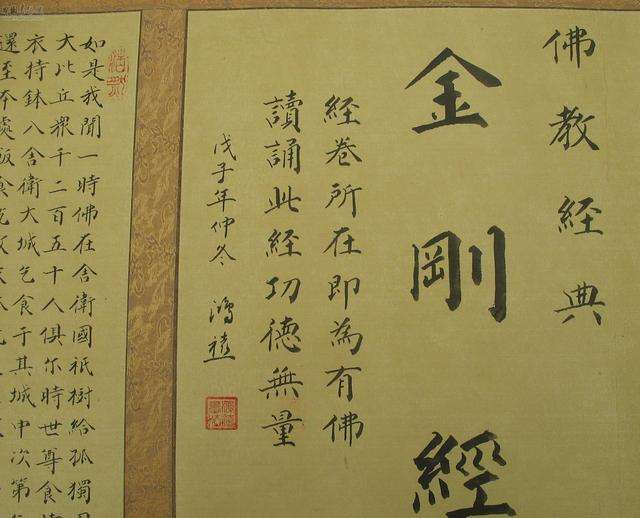 佛教經典
金剛經
經卷所在即為有佛
讀誦此經功德無量
戊子年仲冬
如是我聞一時佛在舍衛國祇樹給孤獨
大比丘眾千二百五十人俱尒時世尊食
衣持鉢入舍衛大城乞食于其城中次第
還至本處飯食